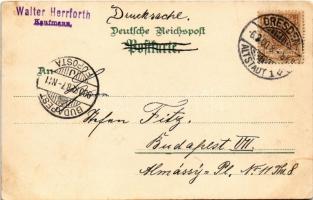 Walter Herrforth
Kaufmann.
Drucksache.
Deutsche Reichspost
Postkarte
An
DRESDEN
ALTSTADT
BUDAPEST
FŐPOSTA
Stefan Fitz.
Budapest VII.
Almássy-Pl. No 11